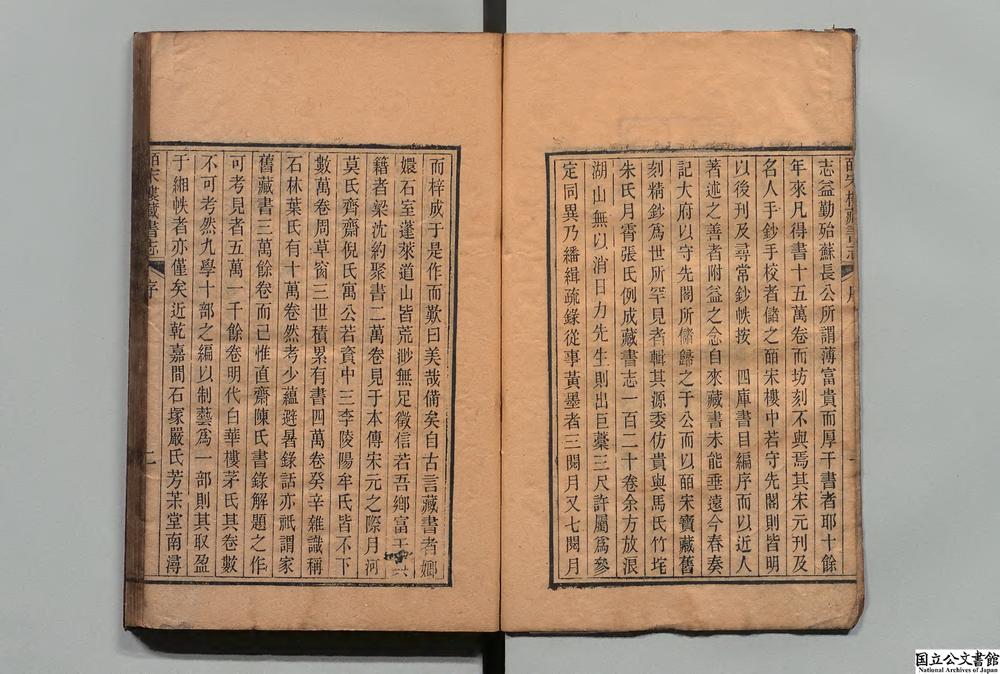 志益勤殆蘇長公所謂薄富貴而厚于書者耶十餘
年來凡得書十五萬卷而坊刻不與焉其宋元刊及
名人手鈔手校者儲之皕宋樓中若守先閣則皆明
以後刊及尋常鈔帙按 四庫書目編序而以近人
著述之善者附益之念自來藏書未能垂遠今春奏
記大府以守先閣所儲歸之于公而以皕宋寶藏舊
刻精鈔爲世所罕見者輯其源委仿貴與馬氏竹垞
朱氏月霄張氏例成藏書志一百二十卷余方放浪
湖山無以消日力先生則出巨藁三尺許屬爲參
定同異乃繙緝疏錄從事黃墨者三閱月又七閱月
皕宋樓藏書志 序
而梓成于是作而歎曰美哉備矣自古言藏書者嫏
嬛石室蓬萊道山皆荒渺無足徵信若吾鄉富于
籍者梁沈約聚書二萬卷見于本傳宋元之際月河
莫氏齊齋倪氏寓公若資中三李陵陽牟氏皆不下
數萬卷周草窗三世積累有書四萬卷癸辛雜識稱
石林葉氏有十萬卷然考少蘊避暑錄話亦祇謂家
舊藏書三萬餘卷而已惟直齋陳氏書錄解題之作
可考見者五萬一千餘卷明代白華樓茅氏其卷數
不可考然九學十部之編以制藝爲一部則其取盈
于緗帙者亦僅矣近乾嘉間石塚嚴氏芳茮堂南潯
皕宋樓藏書志 序 二
国立公文書館
National Archives of Japan